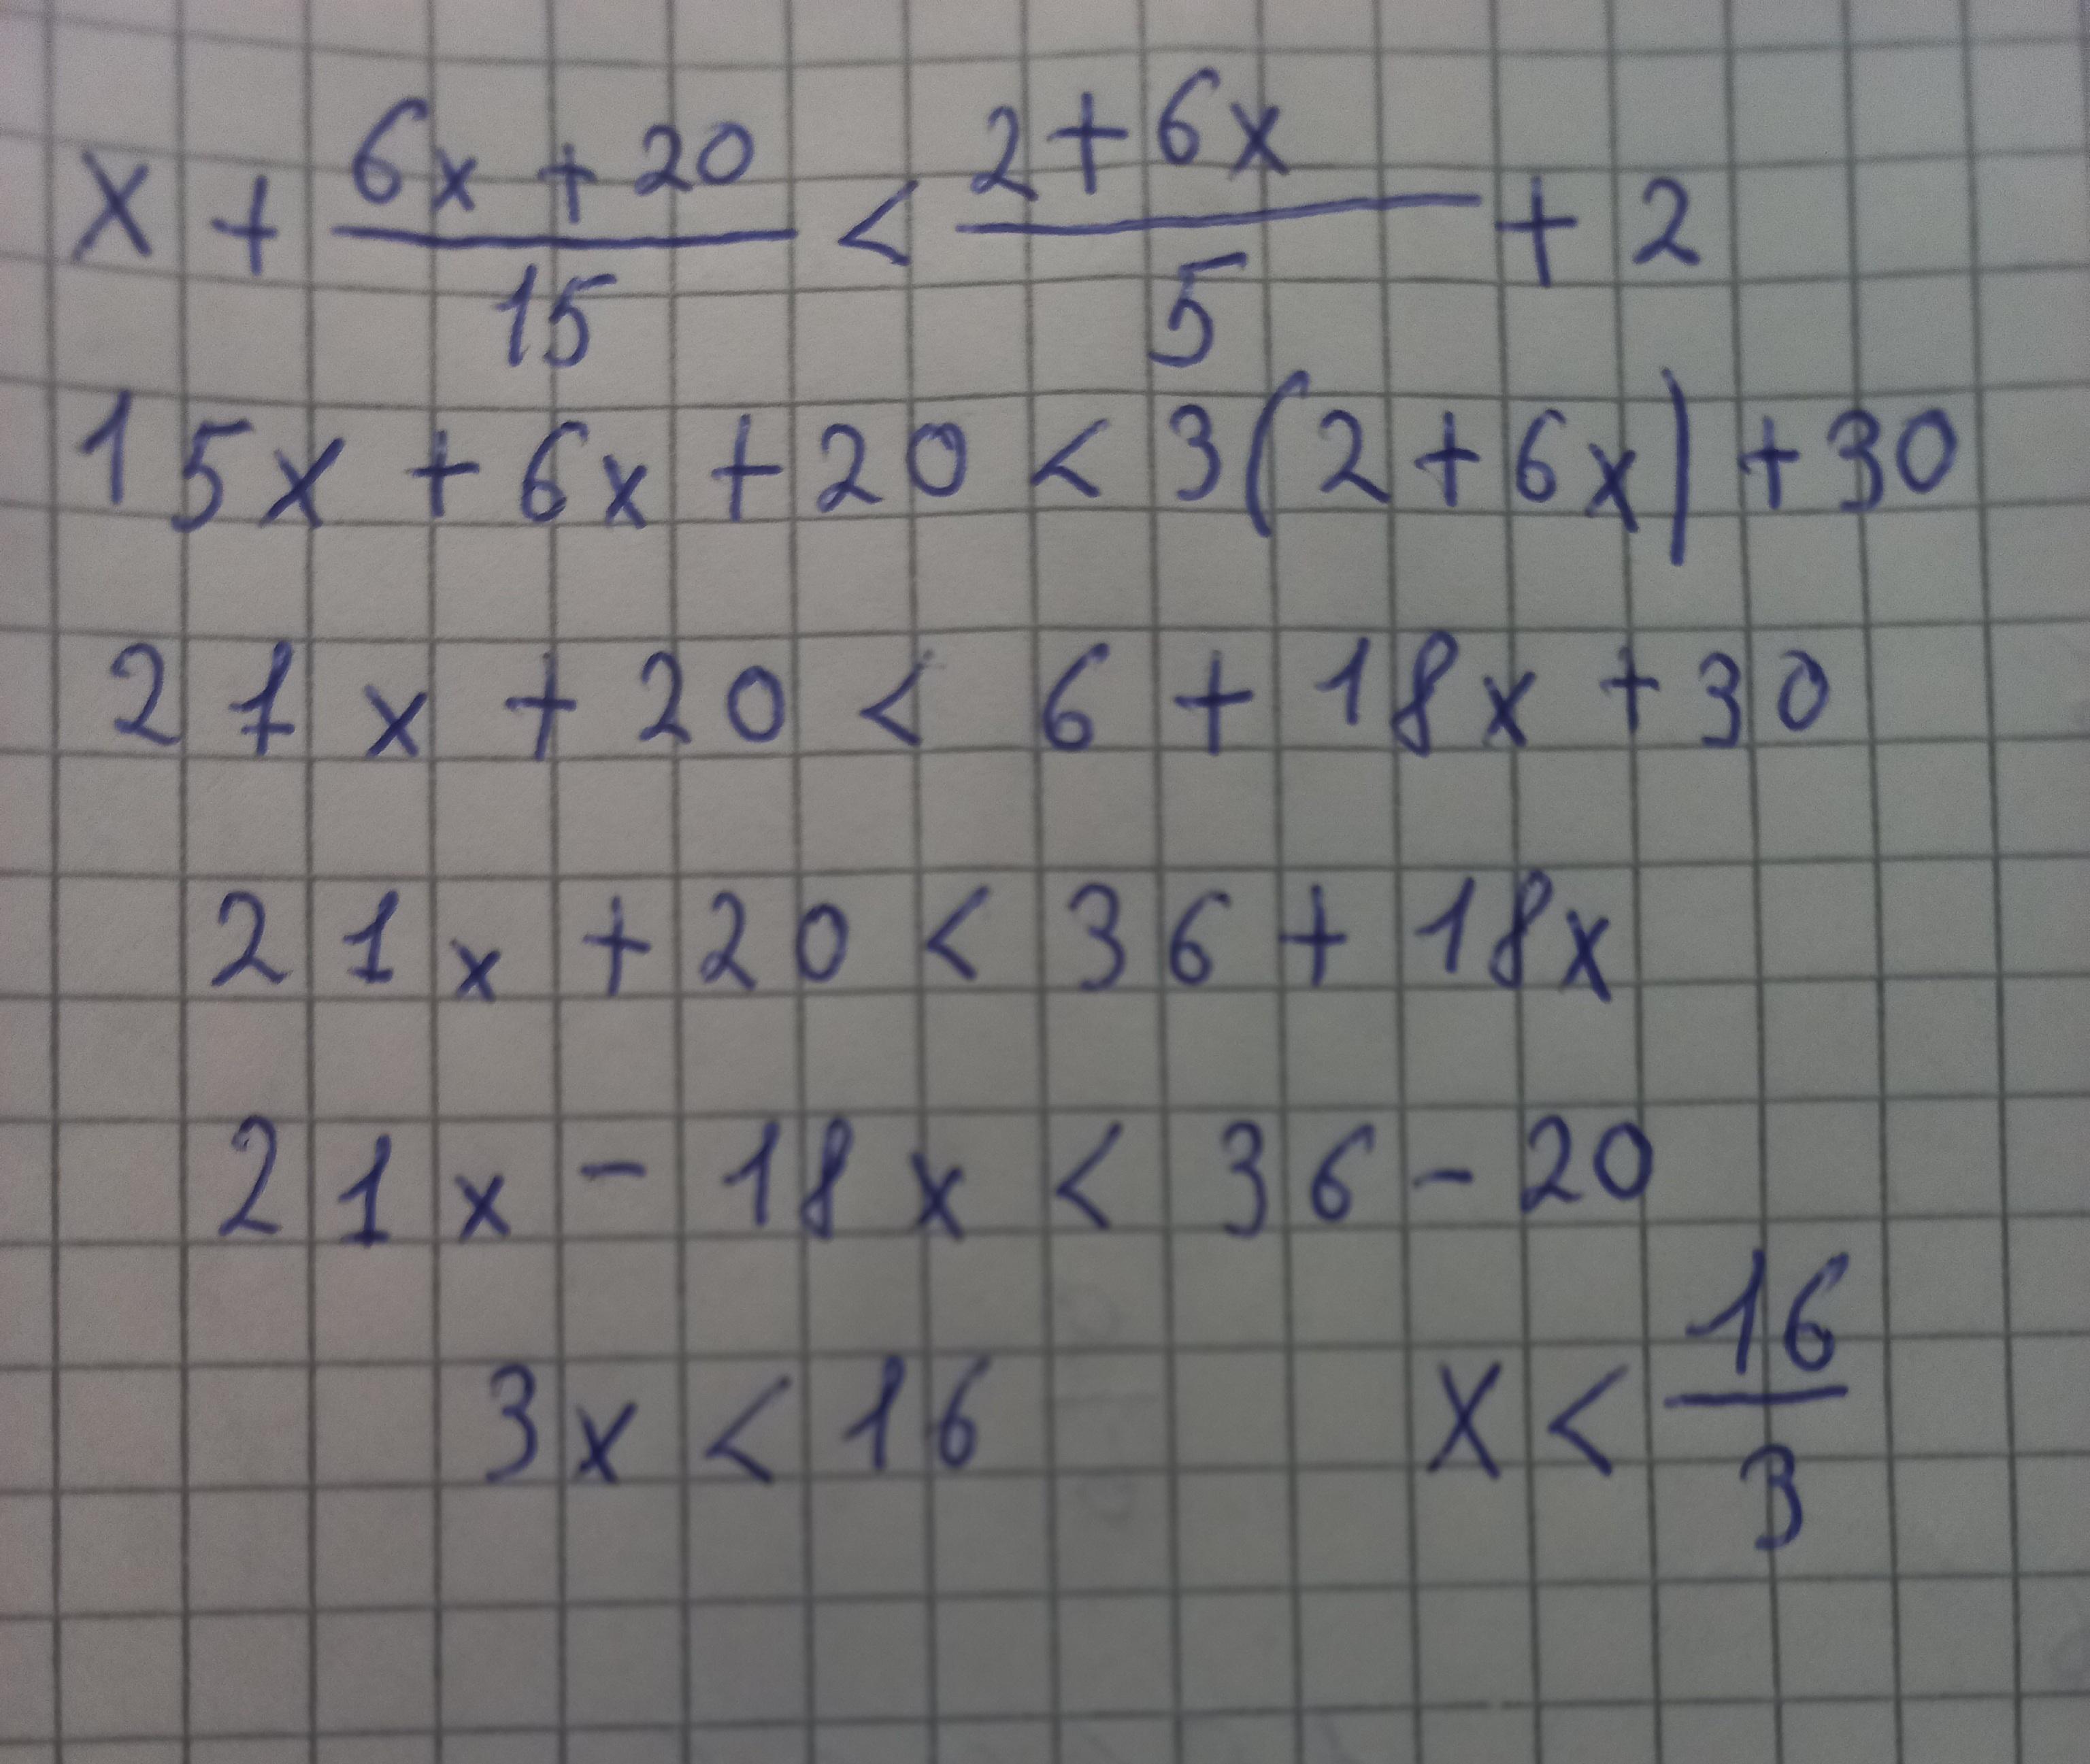 x + (6x + 20)/15 < (2 + 6x)/5 + 2
15x + 6x + 20 < 3(2 + 6x) + 30
21x + 20 < 6 + 18x + 30
21x + 20 < 36 + 18x
21x - 18x < 36 - 20
3x < 16 x < 16/3